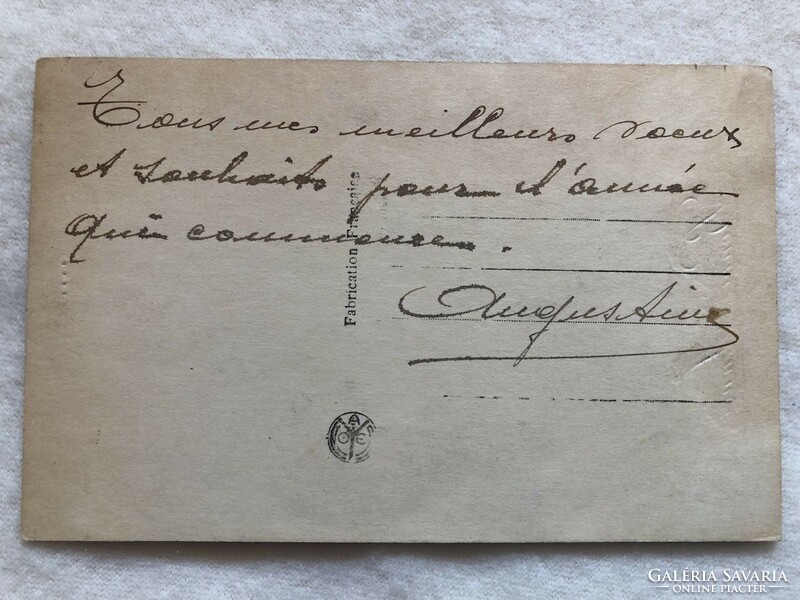 Tous mes meilleurs voeux
et souhaits pour l'année
qui commence.
Augustine
Fabrication Française
GALÉRIA SAVARIA
ONLINE PIACTÉR